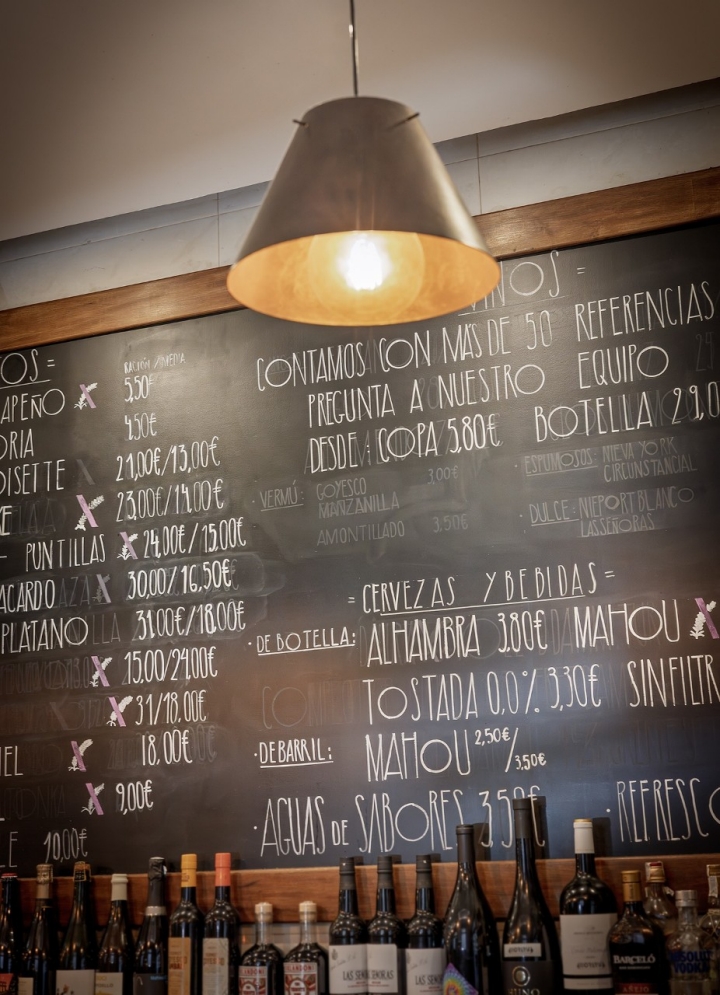 OS=
RACIÓN/MEDIA
APEÑO X 5,50€
ORIA 4,50€
OISETTE 21,00€/13,00€
X 23,00€/14,00€
PUNTILLAS X 24,00€/15,00€
ACARDO 30,00/16,50€
PLATANO 31,00€/18,00€
X 15,00/24,00€
X 31/18,00€
X 18,00€
X 9,00€
10,00€
VINOS =
CONTAMOS CON MÁS DE 50 REFERENCIAS
PREGUNTA A NUESTRO EQUIPO
DESDE: COPA 5,80€ BOTELLA 29,0
3,00€
· VERMÚ: GOYESCO
MANZANILLA
AMONTILLADO 3,50€
· ESPUMOSOS: NUEVA YORK
CIRCUNSTANCIAL
· DULCE: NIEPORT BLANCO
LASSEÑORAS
= CERVEZAS Y BEBIDAS =
· DE BOTELLA: ALHAMBRA 3,80€ MAHOU X
TOSTADA 0,0% 3,30€ SINFILTR
· DE BARRIL: MAHOU 2,50€/3,50€
· AGUAS DE SABORES 3,50€ · REFRESC
BARCELÓ
AÑEJO
ABSOLUT
VODKA